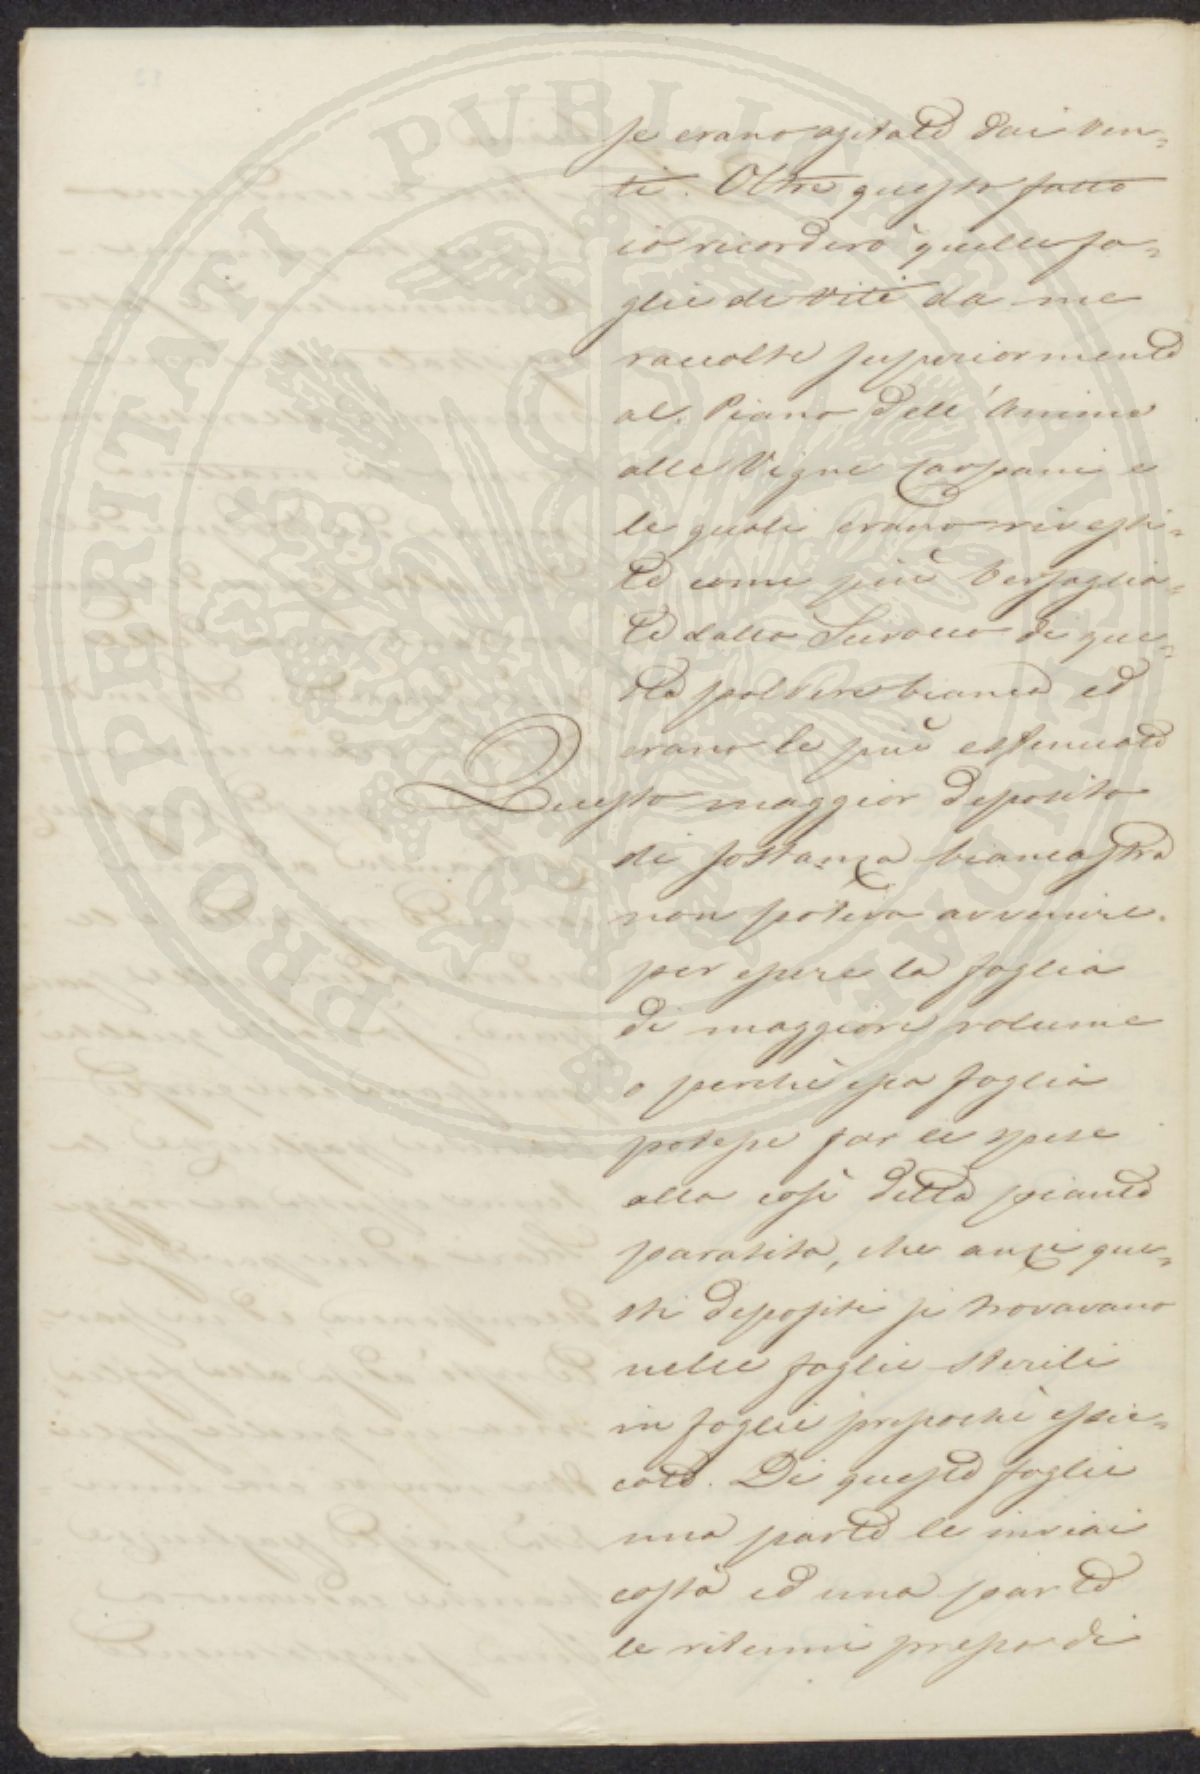 PROSPERITATI PVBLICAE AVGENDAE
se erano agitate dai ven=
ti. Oltre questo fatto
io ricorderò quelle fo=
glie di viti da me
raccolte superiormente
al Piano dell'Anime
alle Vigne e
le quali erano rivesti=
te come più bersaglia=
te dallo Scirocco di que=
sta polvere bianca ed
erano le più estenuate
Questo maggior deposito
di sostanza biancastra
non poteva avvenire
per essere la foglia
di maggiore volume
o perchè essa foglia
potesse far le spese
alla così detta pianta
parasita, che anzi que=
sti depositi si trovavano
nelle foglie sterili
in foglie pressochè essic=
cate. Di queste foglie
una parte le inviai
costà ed una parte
le ritenni presso di